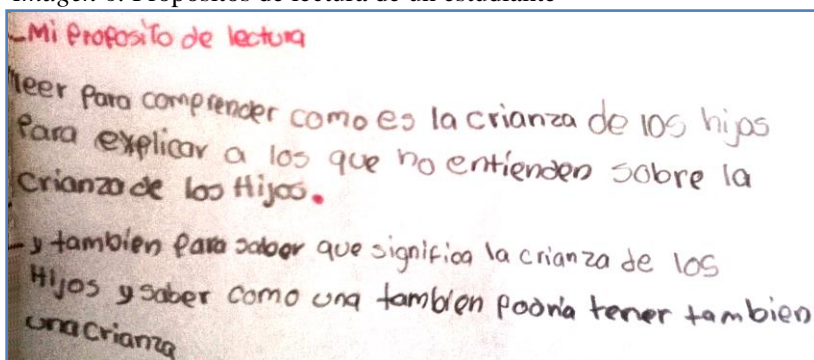 Imagen 6. Propósitos de lectura de un estudiante
- Mi proposito de lectura
leer para comprender como es la crianza de los hijos
para explicar a los que no entienden sobre la
crianza de los Hijos.
- y tambien para saber que significa la crianza de los
Hijos y saber como una tambien podria tener tambien
una crianza